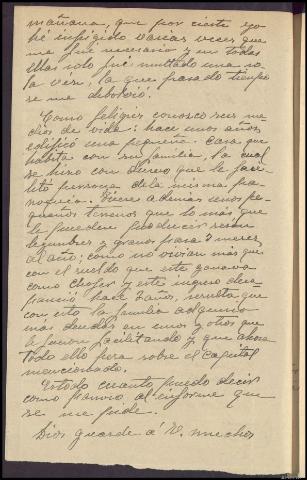 mañana, que por cierto yo
hé infijido varias veces que
me fué necesario y en todas
ellas solo fué multado una so-
la vez, la que pasado tiempo
se me debolvió.
Como feligres conosco sus me-
dios de vida: hace unos años
edificó una pequeña casa que
habita con su familia, la cual
se hizo con dinero que le faci-
litó persona de la misma pa-
rroquia. Tiene además unos pe-
queños terrenos que lo más que
le pueden producir serán
legumbres y granos para 3 meses
al año; como no vivian más que
con el sueldo que este ganava
como chofer y este ingreso desa-
pareció hace 2 años, resulta que
con esto la familia adquirió
más deudas en unos y otros que
le fueron facilitando y que ahora
todo ello pesa sobre el capital
mencionado.
Es todo cuanto puedo decir
como parroco al informe que
se me pide.
Dios guarde á V. muchos